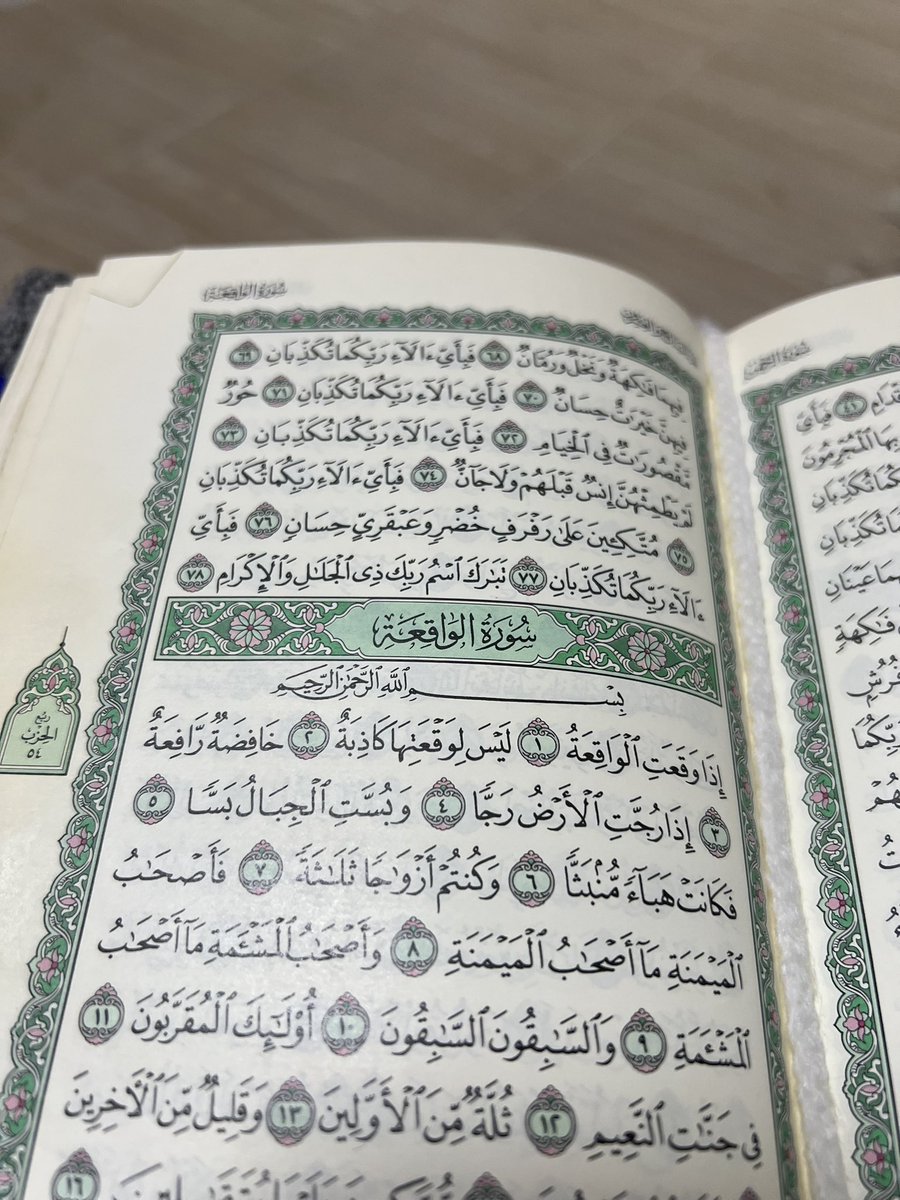 سُورَةُ الوَاقِعَةِ
فِيهِمَا فَٰكِهَةٌ وَنَخْلٌ وَرُمَّانٌ ٦٨ فَبِأَيِّ ءَالَآءِ رَبِّكُمَا تُكَذِّبَانِ ٦٩
فِيهِنَّ خَيْرَٰتٌ حِسَانٌ ٧٠ فَبِأَيِّ ءَالَآءِ رَبِّكُمَا تُكَذِّبَانِ ٧١ حُورٌ
مَّقْصُورَٰتٌ فِي ٱلْخِيَامِ ٧٢ فَبِأَيِّ ءَالَآءِ رَبِّكُمَا تُكَذِّبَانِ ٧٣
لَمْ يَطْمِثْهُنَّ إِنسٌ قَبْلَهُمْ وَلَا جَآنٌّ ٧٤ فَبِأَيِّ ءَالَآءِ رَبِّكُمَا تُكَذِّبَانِ
٧٥ مُتَّكِـِٔينَ عَلَىٰ رَفْرَفٍ خُضْرٍ وَعَبْقَرِيٍّ حِسَانٍ ٧٦ فَبِأَيِّ
ءَالَآءِ رَبِّكُمَا تُكَذِّبَانِ ٧٧ تَبَٰرَكَ ٱسْمُ رَبِّكَ ذِي ٱلْجَلَٰلِ وَٱلْإِكْرَامِ ٧٨
سُورَةُ الوَاقِعَةِ
بِسْمِ ٱللَّهِ ٱلرَّحْمَٰنِ ٱلرَّحِيمِ
إِذَا وَقَعَتِ ٱلْوَاقِعَةُ ١ لَيْسَ لِوَقْعَتِهَا كَاذِبَةٌ ٢ خَافِضَةٌ رَّافِعَةٌ
٣ إِذَا رُجَّتِ ٱلْأَرْضُ رَجًّا ٤ وَبُسَّتِ ٱلْجِبَالُ بَسًّا ٥
فَكَانَتْ هَبَآءً مُّنۢبَثًّا ٦ وَكُنتُمْ أَزْوَٰجًا ثَلَٰثَةً ٧ فَأَصْحَٰبُ
ٱلْمَيْمَنَةِ مَآ أَصْحَٰبُ ٱلْمَيْمَنَةِ ٨ وَأَصْحَٰبُ ٱلْمَشْـَٔمَةِ مَآ أَصْحَٰبُ
ٱلْمَشْـَٔمَةِ ٩ وَٱلسَّٰبِقُونَ ٱلسَّٰبِقُونَ ١٠ أُو۟لَٰٓئِكَ ٱلْمُقَرَّبُونَ ١١
فِي جَنَّٰتِ ٱلنَّعِيمِ ١٢ ثُلَّةٌ مِّنَ ٱلْأَوَّلِينَ ١٣ وَقَلِيلٌ مِّنَ ٱلْأَخِرِينَ
١٦
رُبْع
الحِزْبُ
٥٤
٤١ فَبِأَيِّ
ٱلْمُجْرِمُونَ
تُكَذِّبَانِ
تُكَذِّبَانِ
عَيْنَانِ
فَٰكِهَةٍ
فُرُشٍ